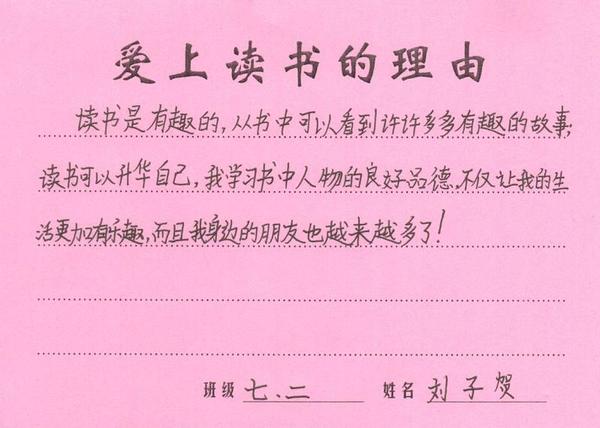 爱上读书的理由
读书是有趣的，从书中可以看到许许多多有趣的故事；
读书可以升华自己，我学习书中人物的良好品德，不仅让我的生
活更加有乐趣，而且我身边的朋友也越来越多了！
班级 七．二 姓名 刘子贺